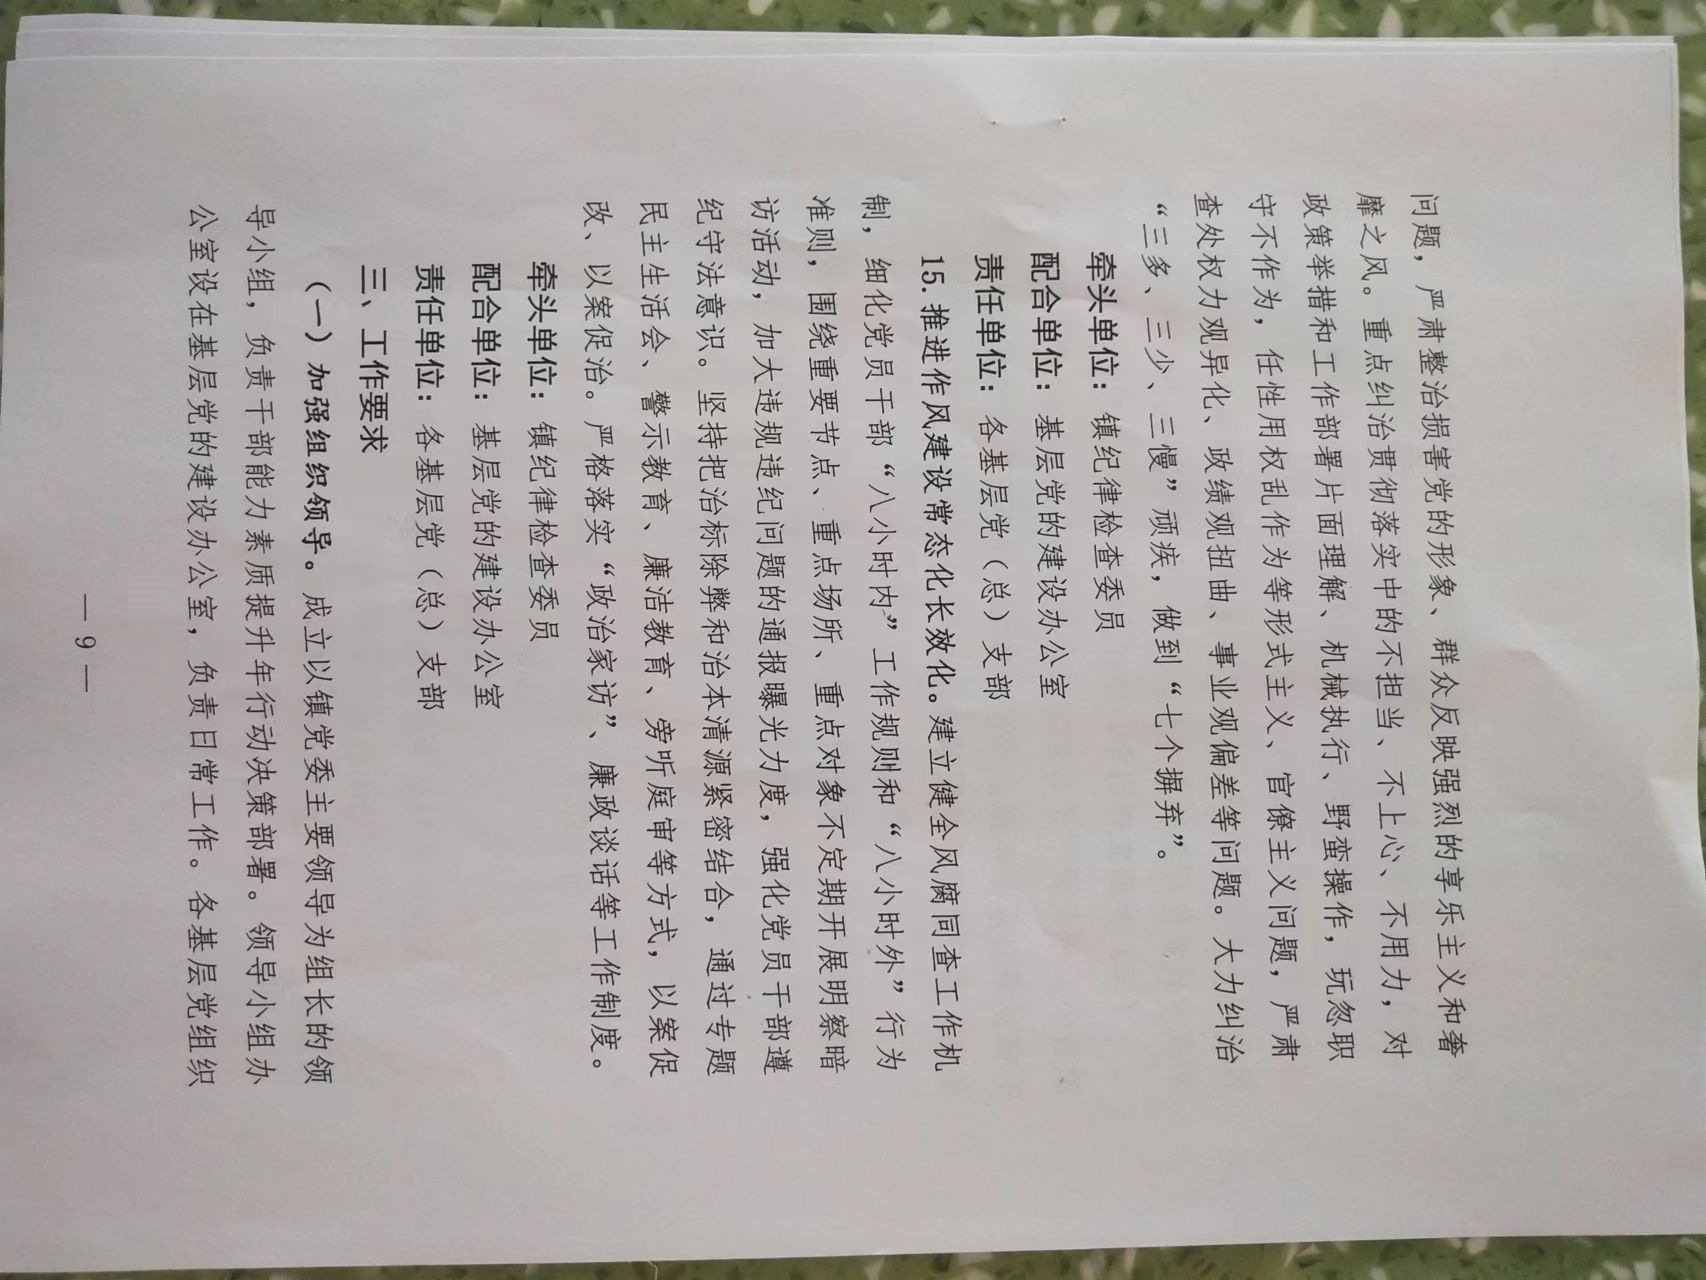 问题，严肃整治损害党的形象、群众反映强烈的享乐主义和奢
靡之风。重点纠治贯彻落实中的不担当、不上心、不用力，对
政策举措和工作部署片面理解、机械执行、野蛮操作，玩忽职
守不作为，任性用权乱作为等形式主义、官僚主义问题，严肃
查处权力观异化、政绩观扭曲、事业观偏差等问题。大力纠治
“三多、三少、三慢”顽疾，做到“七个摒弃”。
牵头单位：镇纪律检查委员
配合单位：基层党的建设办公室
责任单位：各基层党（总）支部
15.推进作风建设常态化长效化。建立健全风腐同查工作机
制，细化党员干部“八小时内”工作规则和“八小时外”行为
准则，围绕重要节点、重点场所、重点对象不定期开展明察暗
访活动，加大违规违纪问题的通报曝光力度，强化党员干部遵
纪守法意识。坚持把治标除弊和治本清源紧密结合，通过专题
民主生活会、警示教育、廉洁教育、旁听庭审等方式，以案促
改、以案促治。严格落实“政治家访”、廉政谈话等工作制度。
牵头单位：镇纪律检查委员
配合单位：基层党的建设办公室
责任单位：各基层党（总）支部
三、工作要求
（一）加强组织领导。成立以镇党委主要领导为组长的领
导小组，负责干部能力素质提升年行动决策部署。领导小组办
公室设在基层党的建设办公室，负责日常工作。各基层党组织
— 9 —